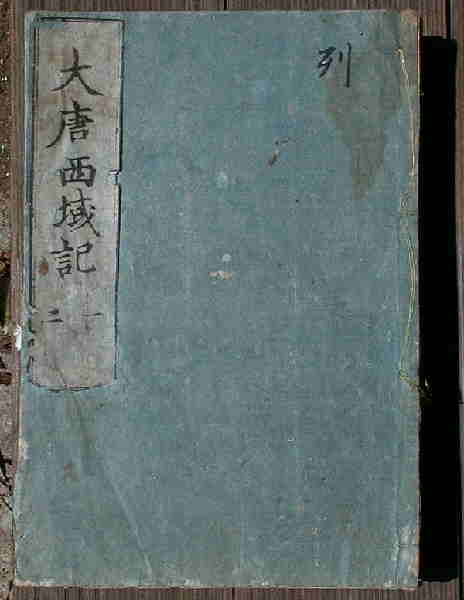 列
大唐西域記
一
二